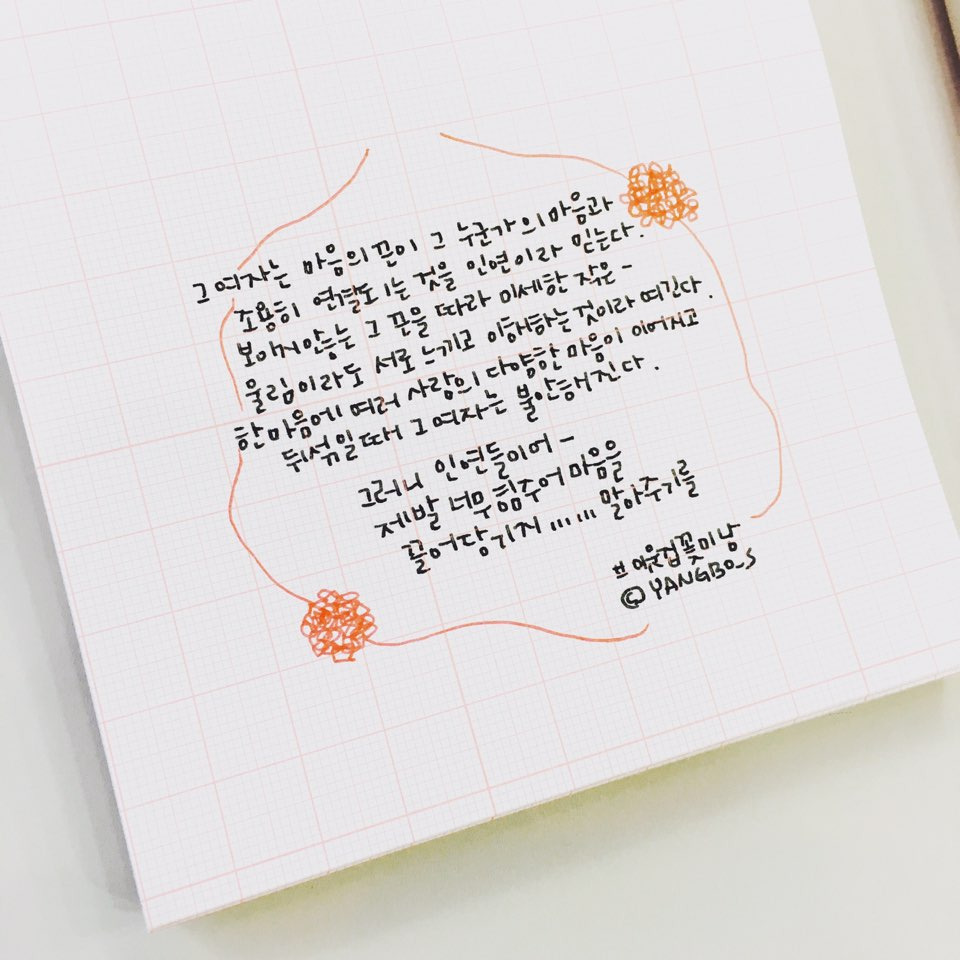 그 여자는 마음의 끈이 그 누군가의 마음과
조용히 연결되는 것을 인연이라 믿는다.
보이지않는 그 끈을 따라 미세한 작은-
울림이라도 서로 느끼고 이해하는 것이라 여긴다.
한마음에 여러 사람의 다양한 마음이 이어지고
뒤섞일때 그 여자는 불안해진다.
그러니 인연들이어-
제발 너무힘주어 마음을
끌어당기지 ...... 말아주기를
ㅍㅍ 이웃집꽃미낭
© YANGBO_S